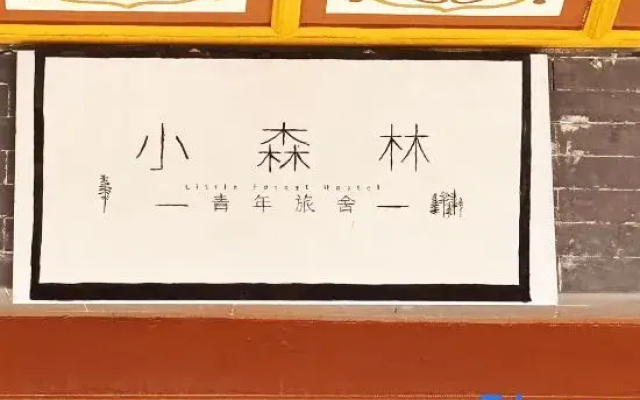 小森林
Little Forest Hostel
一青年旅舍一